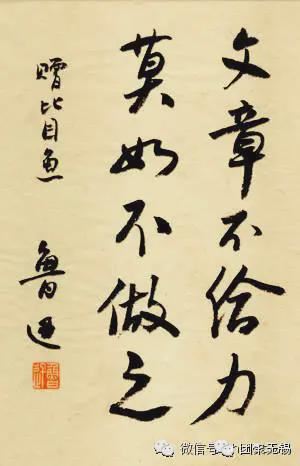 文章不给力
莫如不做之
赠比目鱼
鲁迅
微信号